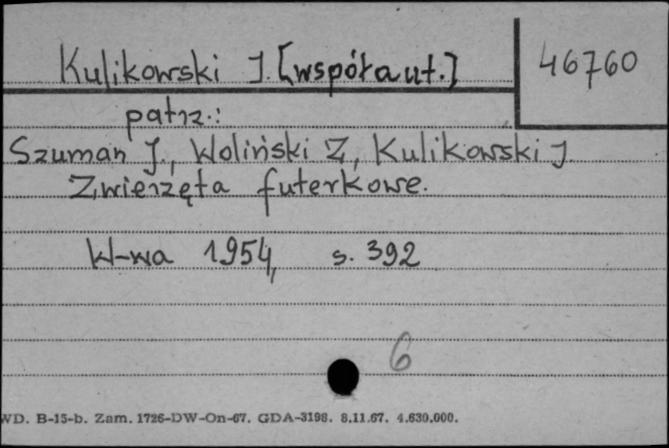 Kulikowski J. [współaut.]
46760
patrz:
Szuman J., Woliński Z, Kulikowski J
Zwierzęta futerkowe.
W-wa 1954, s. 392
6
WD. B-15-b. Zam. 1726-DW-On-67. GDA-3198. 8.11.67. 4.630.000.